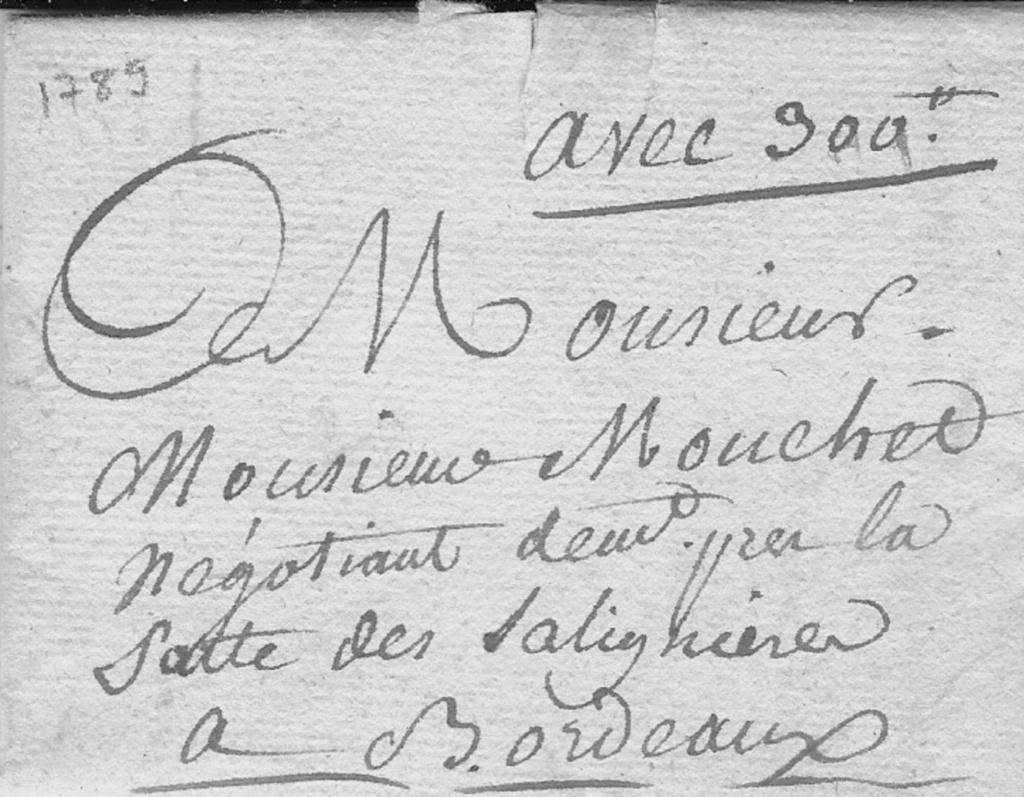 1789
avec 300.#
A Monsieur.
Monsieur Mouchet
négotiant demt. pres la
Patte des Salignieres
a Bordeaux